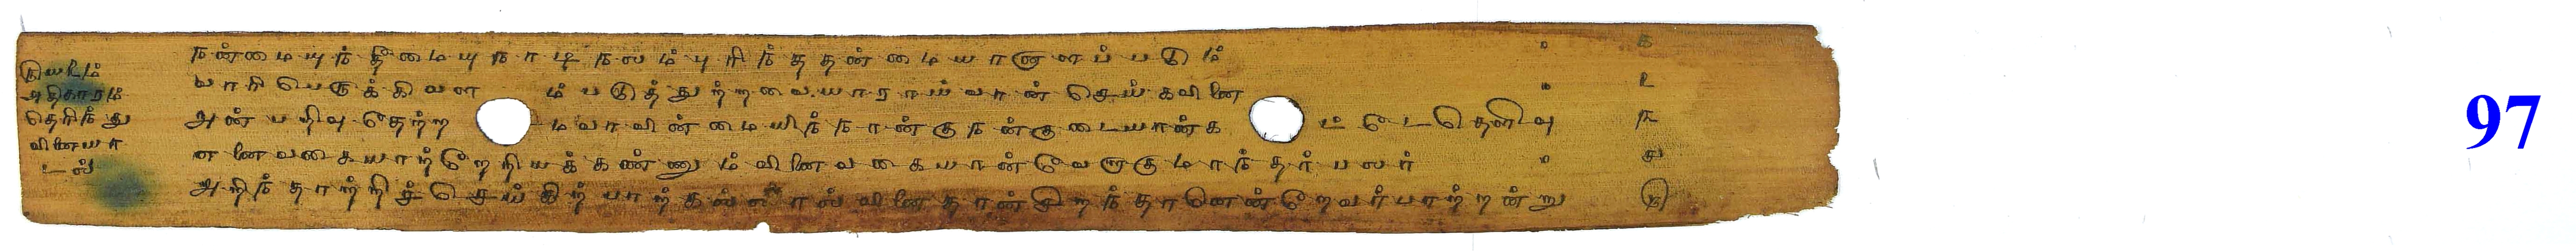 ௫௰உம்
அதிகாரம்
தெரிந்து
வினையா
டல்
நன்மையுந்தீமையுநாடிநலம்புரிந்ததன்மையானாளப்படும் ௧
வாரிபெருக்கிவளம்படுத்துற்றவையாராய்வான்செய்கவினை ௨
அன்பறிவுதேற்றமவாவின்மையிந்நான்குநன்குடையான்கட்டேதெளிவு ௩
எனைவகையாற்றேறியக்கண்ணும்வினைவகையான்வேறாகுமாந்தர்பலர் ௪
அறிந்தாற்றிச்செய்கிற்பாற்கல்லால்வினைதான்சிறந்தானென்றேவற்பாற்றன்று ௫
97